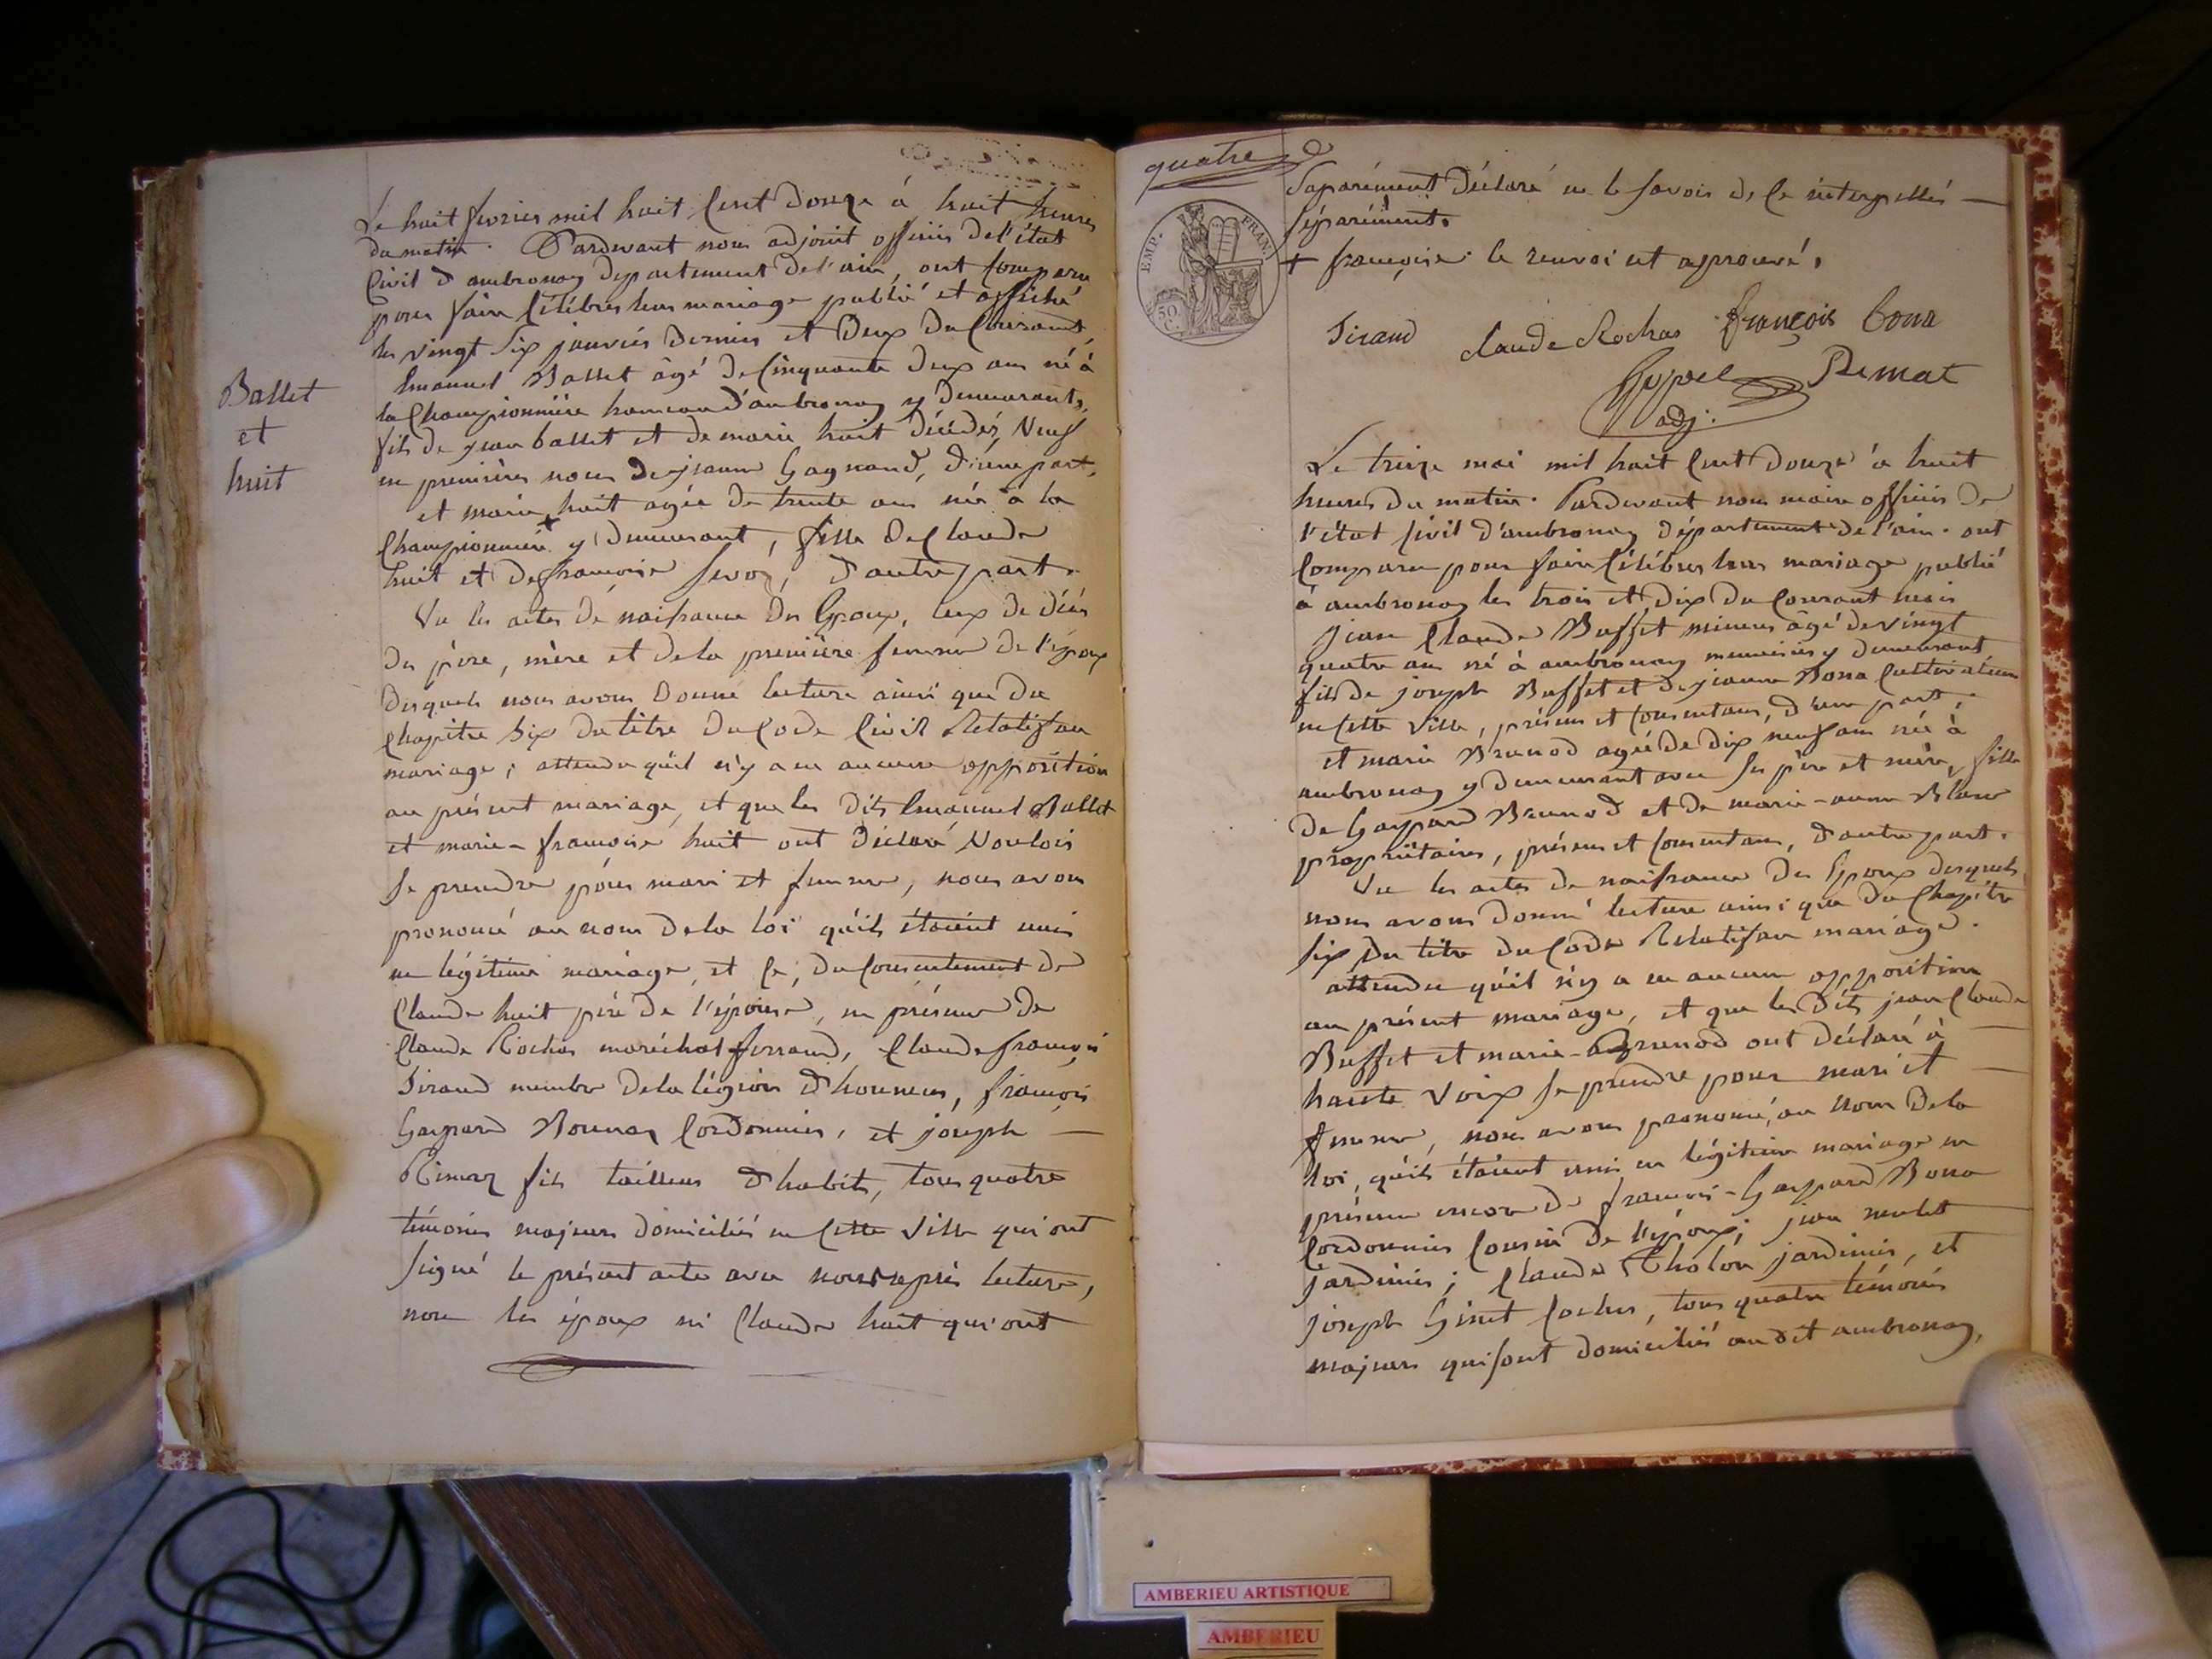 Le huit fevrier mil huit Cent Douze à huit heures
du matin. Pardevant nous adjoint officier de l'état
Civil d'ambronay departement de l'ain, ont Comparu
pour faire Célébrer leur mariage publié et affiché
les vingt Six janvier Dernier et Deux du Courant,
Emanuel Ballet âgé de Cinquante deux ans né à
la Championnière hameau d'ambronay y demeurant,
fils de jean ballet et de marie huit décédés, Veuf
en premières noces de jeanne Gagnaud, d'une part,
et marie + huit agée de trente ans née à la
Championnière y demeurant, fille de Claude
huit et de françoise, d'autre part.
Ballet
et
huit
Vu les actes de naissance des Epoux, ceux de décès
des père, mère et de la première femme de l'époux
desquels nous avons Donné lecture ainsi que du
Chapitre Six du titre du Code Civil Relatif au
mariage; attendu qu'il n'y a eu aucune opposition
au présent mariage, et que les dits Emanuel Ballet
et marie-françoise huit ont déclaré Vouloir
Se prendre pour mari et femme, nous avons
prononcé au nom de la loi qu'ils étoient unis
en légitime mariage, et Ce, du Consentement de
Claude huit père de l'épouse, en présence de
Claude Rochas maréchal ferrand, Claude françois
Sirand membre de la légion d'honneur, françois
Gaspard Cordonnier, et joseph —
fils tailleur d'habits, tous quatre
témoins majeurs domiciliés en Cette Ville qui ont
Signé le présent acte avec nous après lecture,
non les époux ni Claude huit qui ont
quatre
EMP. FRAN.
50 C.
Séparément déclaré ne le savoir de Ce interpellés —
séparément.
+ françoise. le renvoi est aprouvé.
Sirand Claude Rochas françois bona
adj.
Le treize mai mil huit Cent Douze à huit
heures du matin. Pardevant nous maire officier de
l'état Civil d'ambronay département de l'ain. ont
Comparu pour faire Célébrer leur mariage publié
à ambronay les trois et dix du Courant mois
jean Claude Buffet mineur âgé de vingt
quatre ans né à ambronay y demeurant
fils de joseph Buffet et de jeanne Bona Cultivateurs
en Cette Ville, présens et Consentans, d'une part,
et marie Brunod agée de dix neuf ans née à
ambronay y demeurant avec Ses père et mère, fille
de Gaspard Brunod et de marie-anne Blanc
propriétaires, présens et Consentans, d'autre part.
Vu les actes de naissance des Epoux desquels
nous avons donné lecture ainsi que du Chapitre
Six du titre du Code Relatif au mariage.
attendu qu'il n'y a eu aucune opposition
au présent mariage, et que les dits jean Claude
Buffet et marie Brunod ont déclaré à —
haute Voix Se prendre pour mari et —
femme, nous avons prononcé, au Nom de la
loi, qu'ils étoient unis en légitime mariage en
présence encore de françois-Gaspard Bona
Cordonnier Cousin de l'époux; jean mulet —
jardinier; Claude Tholon jardinier, et
joseph Ginet Cocher, tous quatre témoins
majeurs qui sont domiciliés au dit ambronay,
AMBERIEU ARTISTIQUE
AMBERIEU